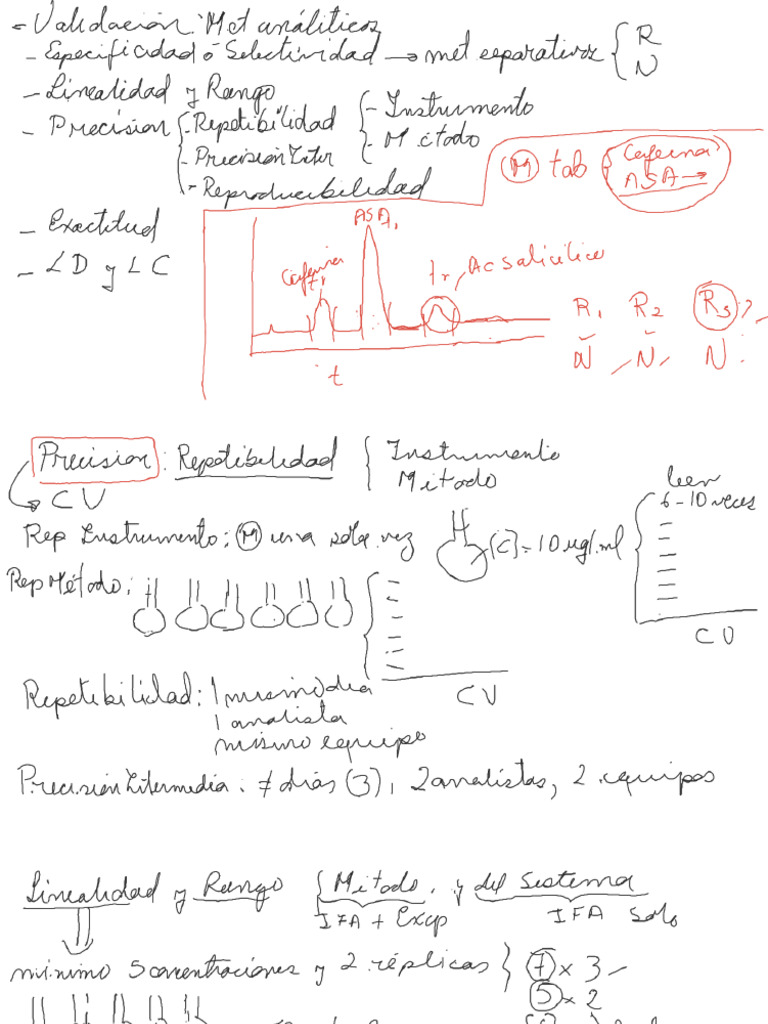 - Validación: Met análiticos
- Especificidad ó Selectividad → met separativos { R
N
- Linealidad y Rango
- Precision { - Repetibilidad { - Instrumento
- Precisión Inter - Metodo
- Reproducibilidad
(M) tab { Cafeina
ASA →
- Exactitud
- LD y LC
ASA,
Cafeina
tr
tr, Ac Salicilico
R1 R2 R3 ?
N, N, N.
t
Precision: Repetibilidad { Instrumento
Metodo
→ CV
leer
6-10 veces
Rep Instrumento: (M) una sola vez [C] = 10 ug/ml
CV
Rep Método:
CV
Repetibilidad: 1 mismo dia
1 analista
mismo equipo
Precisión Intermedia: ≠ dias (3), 2 analistas, 2 equipos
Linealidad y Rango { Metodo, y del Sistema
IFA + Excp IFA solo
minimo 5 concentraciones y 2 réplicas } 7 x 3
5 x 2